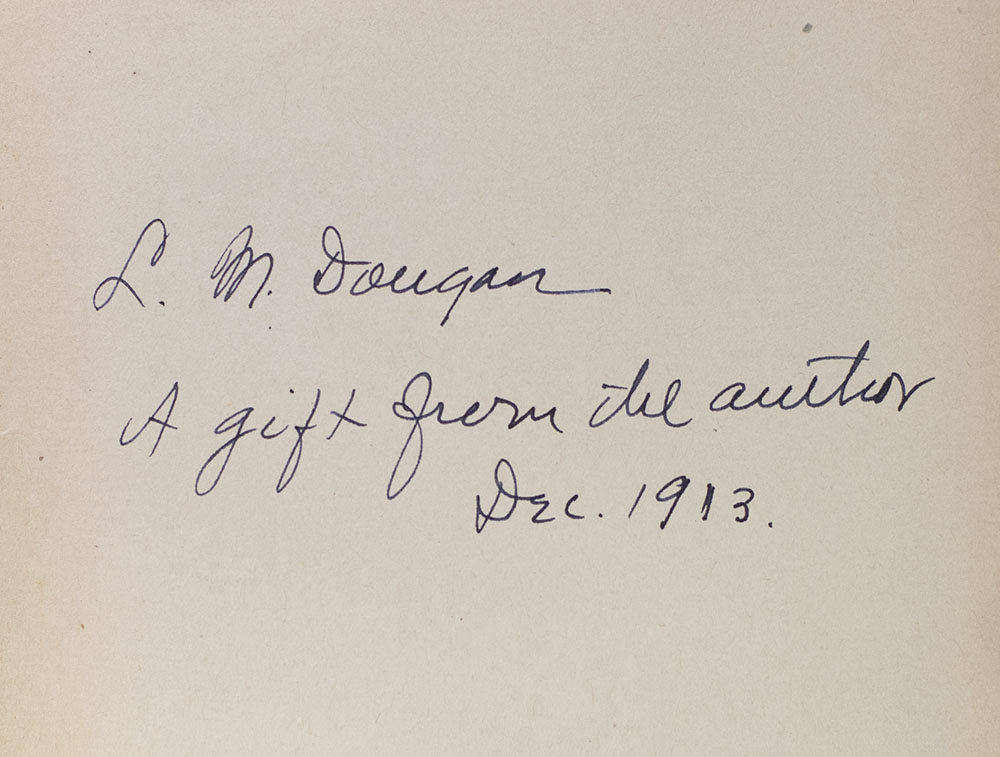 L. M. Dougan
A gift from the author
Dec. 1913.